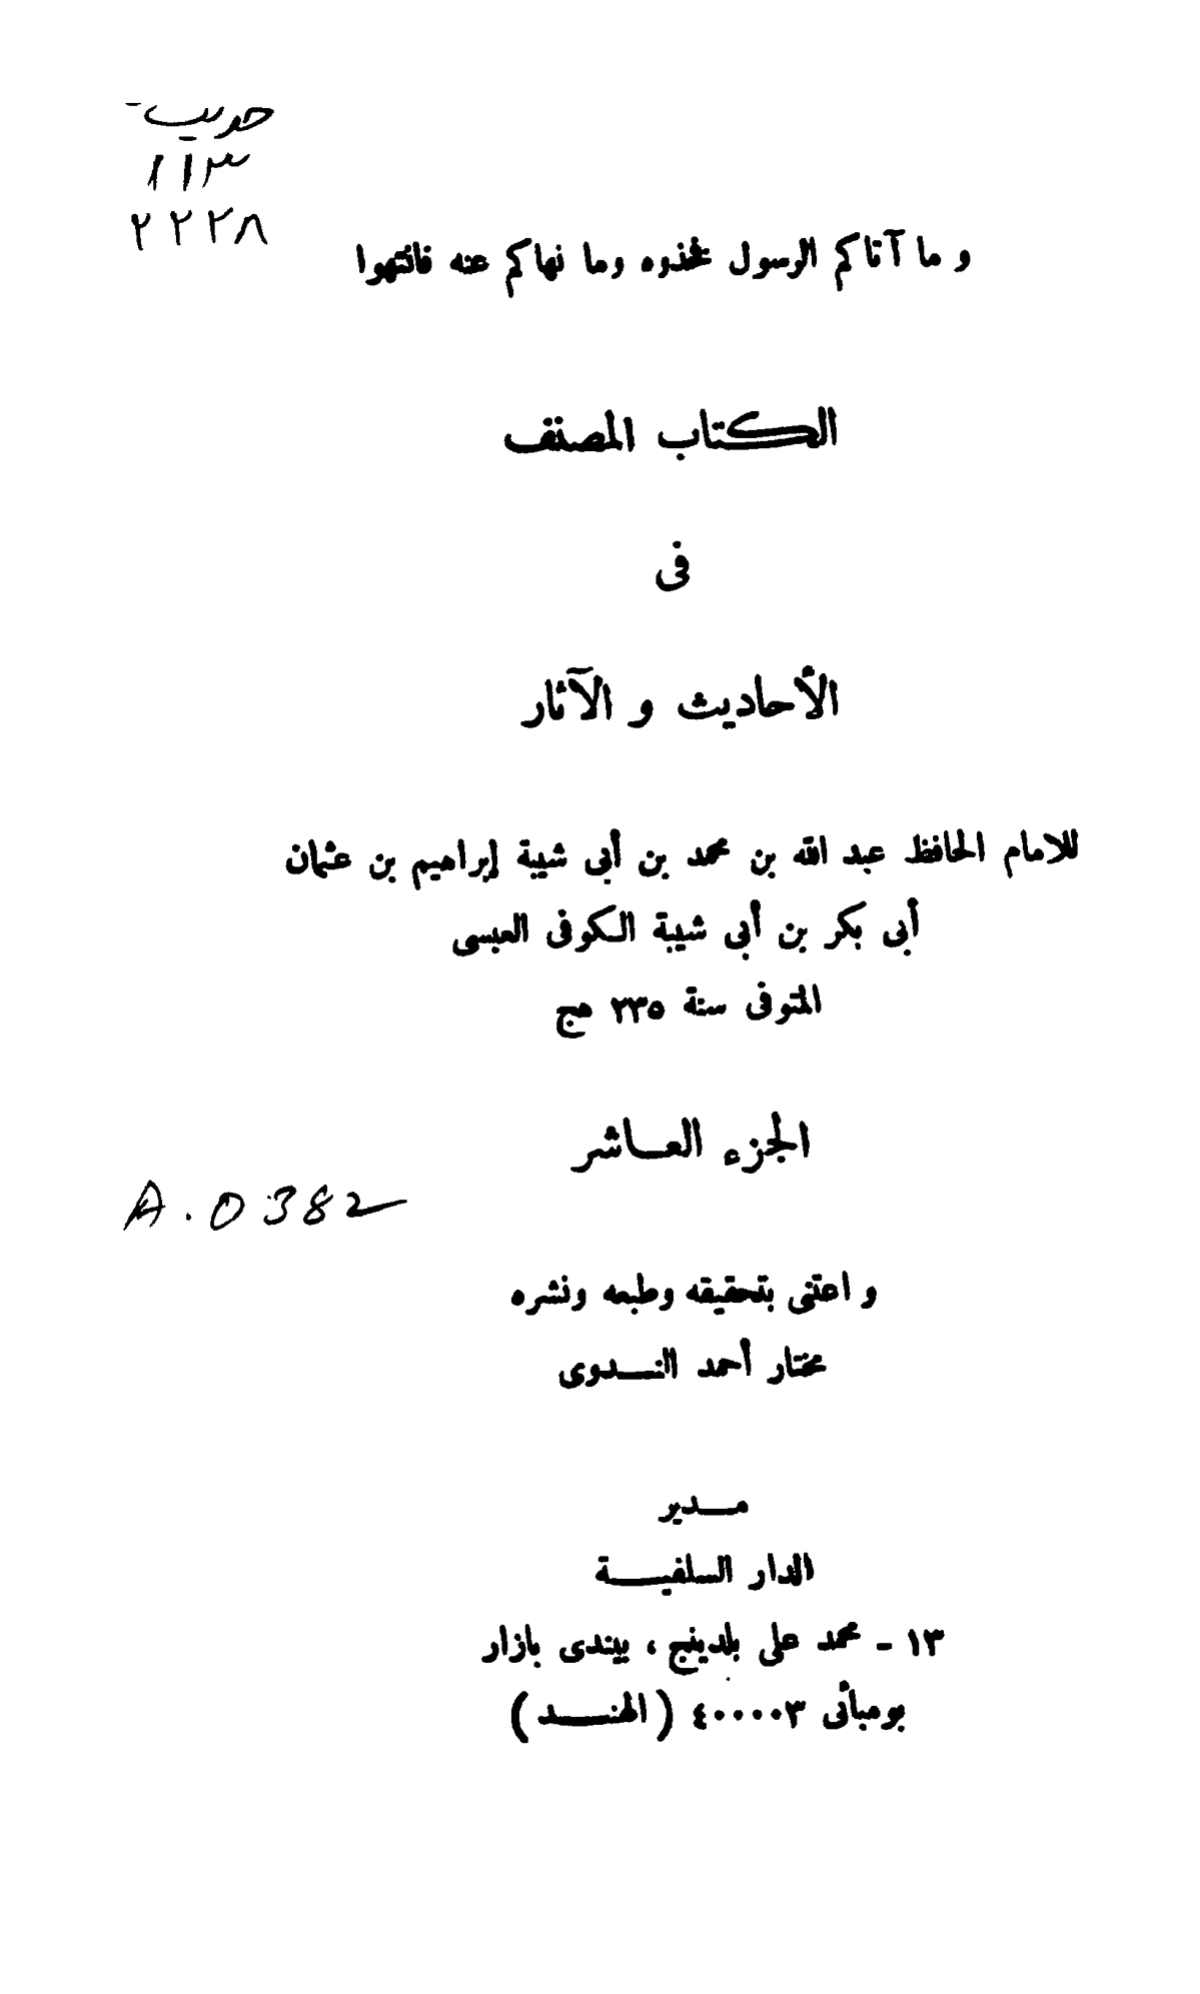 حديث
١١٣
٢٢٢٨
و ما آتاكم الرسول فخذوه وما نهاكم عنه فانتهوا
الكتاب المصنف
فى
الأحاديث و الآثار
للامام الحافظ عبد الله بن محمد بن أبى شيبة إبراهيم بن عثمان
أبى بكر بن أبى شيبة الكوفى العبسى
المتوفى سنة ٢٣٥ هج
الجزء العاشر
A.0382
و اعتنى بتحقيقه وطبعه ونشره
مختار أحمد الندوى
مدير
الدار السلفية
١٣ - محمد على بلدينج ، بيندى بازار
بومبائى ٤٠٠٠٠٣ ( الهند )